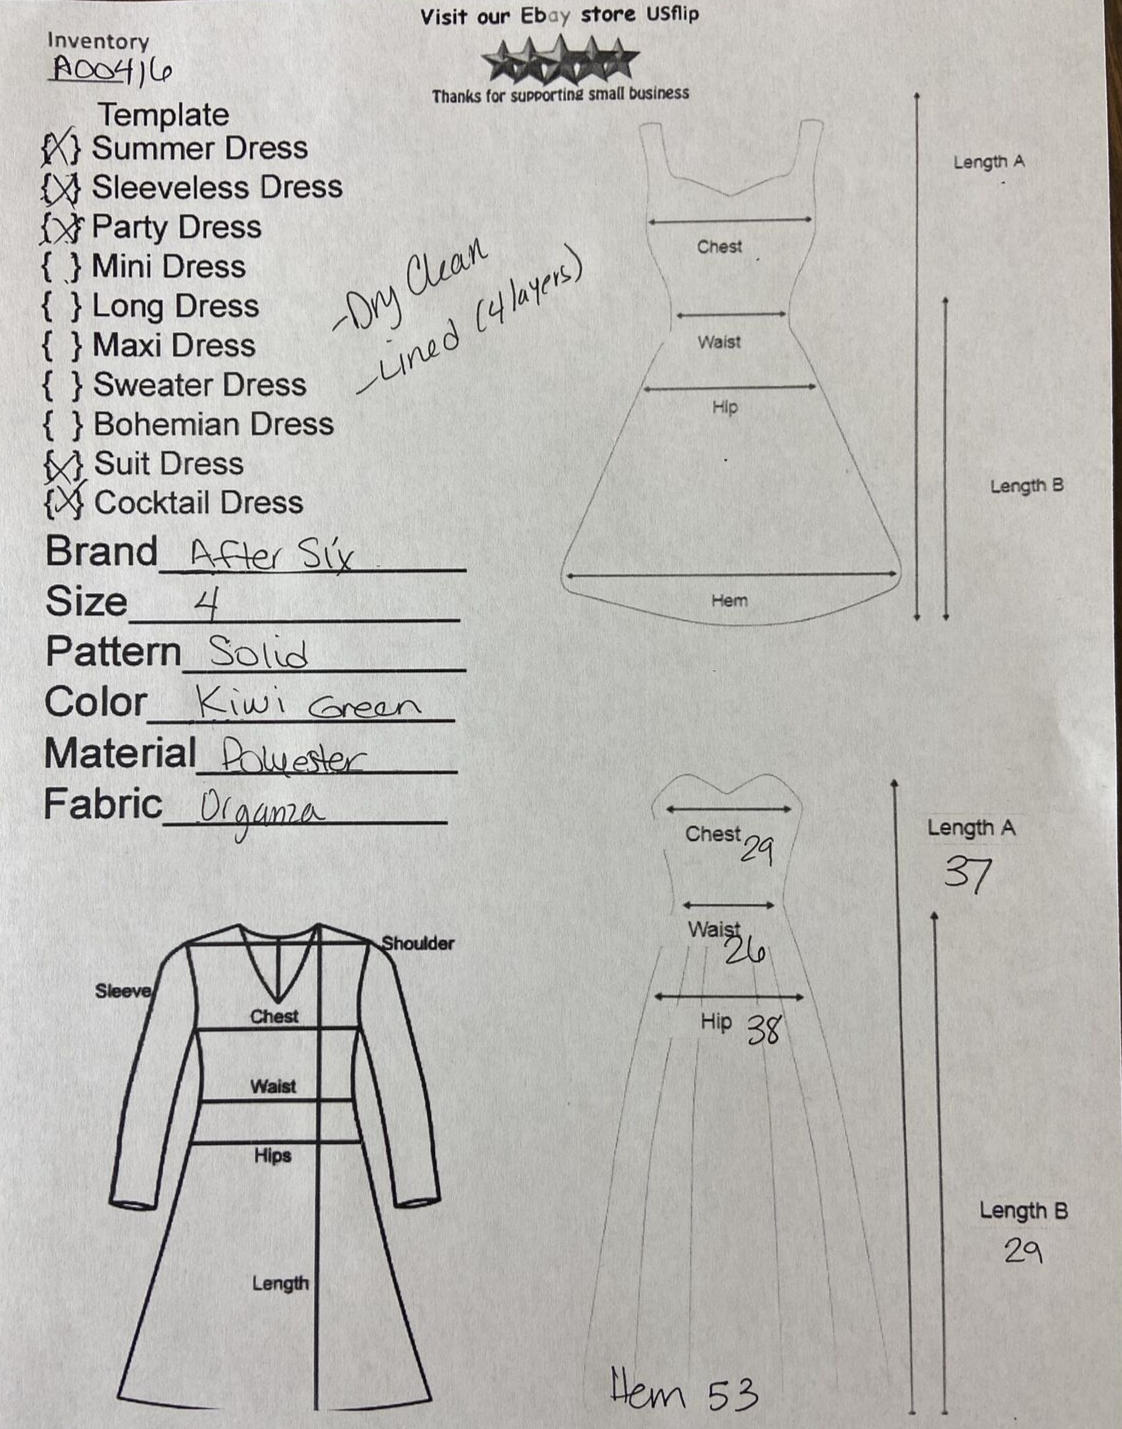 Visit our Ebay store USflip
Inventory
A00416
Thanks for supporting small business
Template
{X} Summer Dress
{X} Sleeveless Dress
{X} Party Dress
{ } Mini Dress
{ } Long Dress
{ } Maxi Dress
{ } Sweater Dress
{ } Bohemian Dress
{X} Suit Dress
{X} Cocktail Dress
-Dry Clean
-Lined (4 layers)
Brand After Six
Size 4
Pattern Solid
Color Kiwi Green
Material Polyester
Fabric Organza
Length A
Chest
Waist
Hip
Length B
Hem
Chest 29
Length A
37
Waist
26
Hip 38
Length B
29
Hem 53
Shoulder
Sleeve
Chest
Waist
Hips
Length